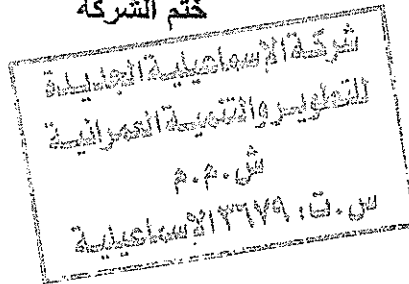 ختم الشركة
شركة الإسماعيلية الجديدة
للتطوير والتنمية العمرانية
ش.م.م
س.ت: ٣٦٧٩ الإسماعيلية